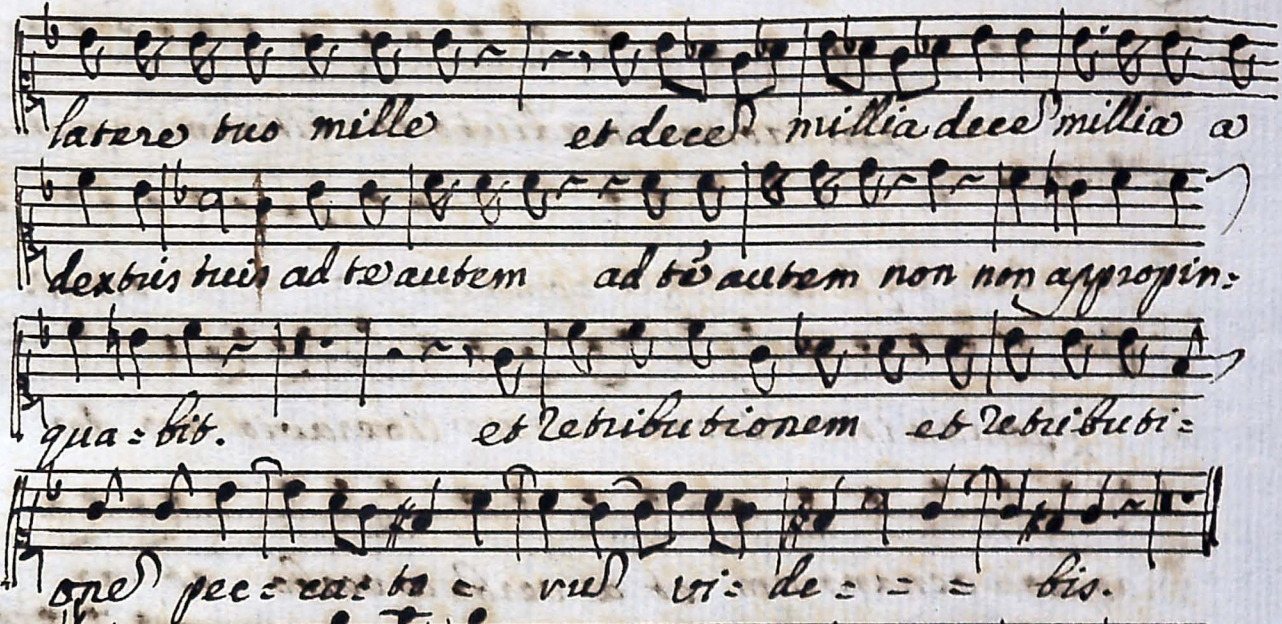 latere tuo mille et dece millia dece millia a
dextris tuis ad te autem ad te autem non non appropin=
qua=bit. et retributionem et retributi=
one pec=ca=to - ru vi=de = = = bis.